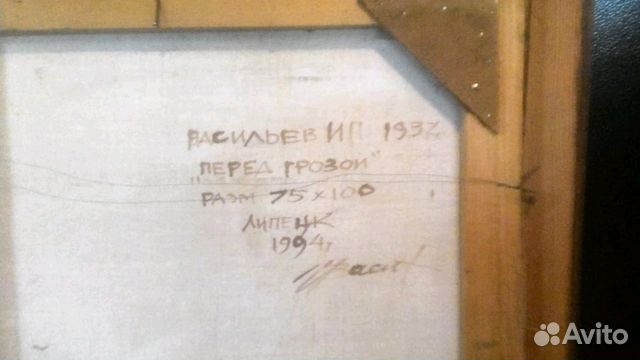 ВАСИЛЬЕВ ИП 1937
"ПЕРЕД ГРОЗОЙ"
РАЗМ 75 х 100
ЛИПЕЦК
1994г
Avito